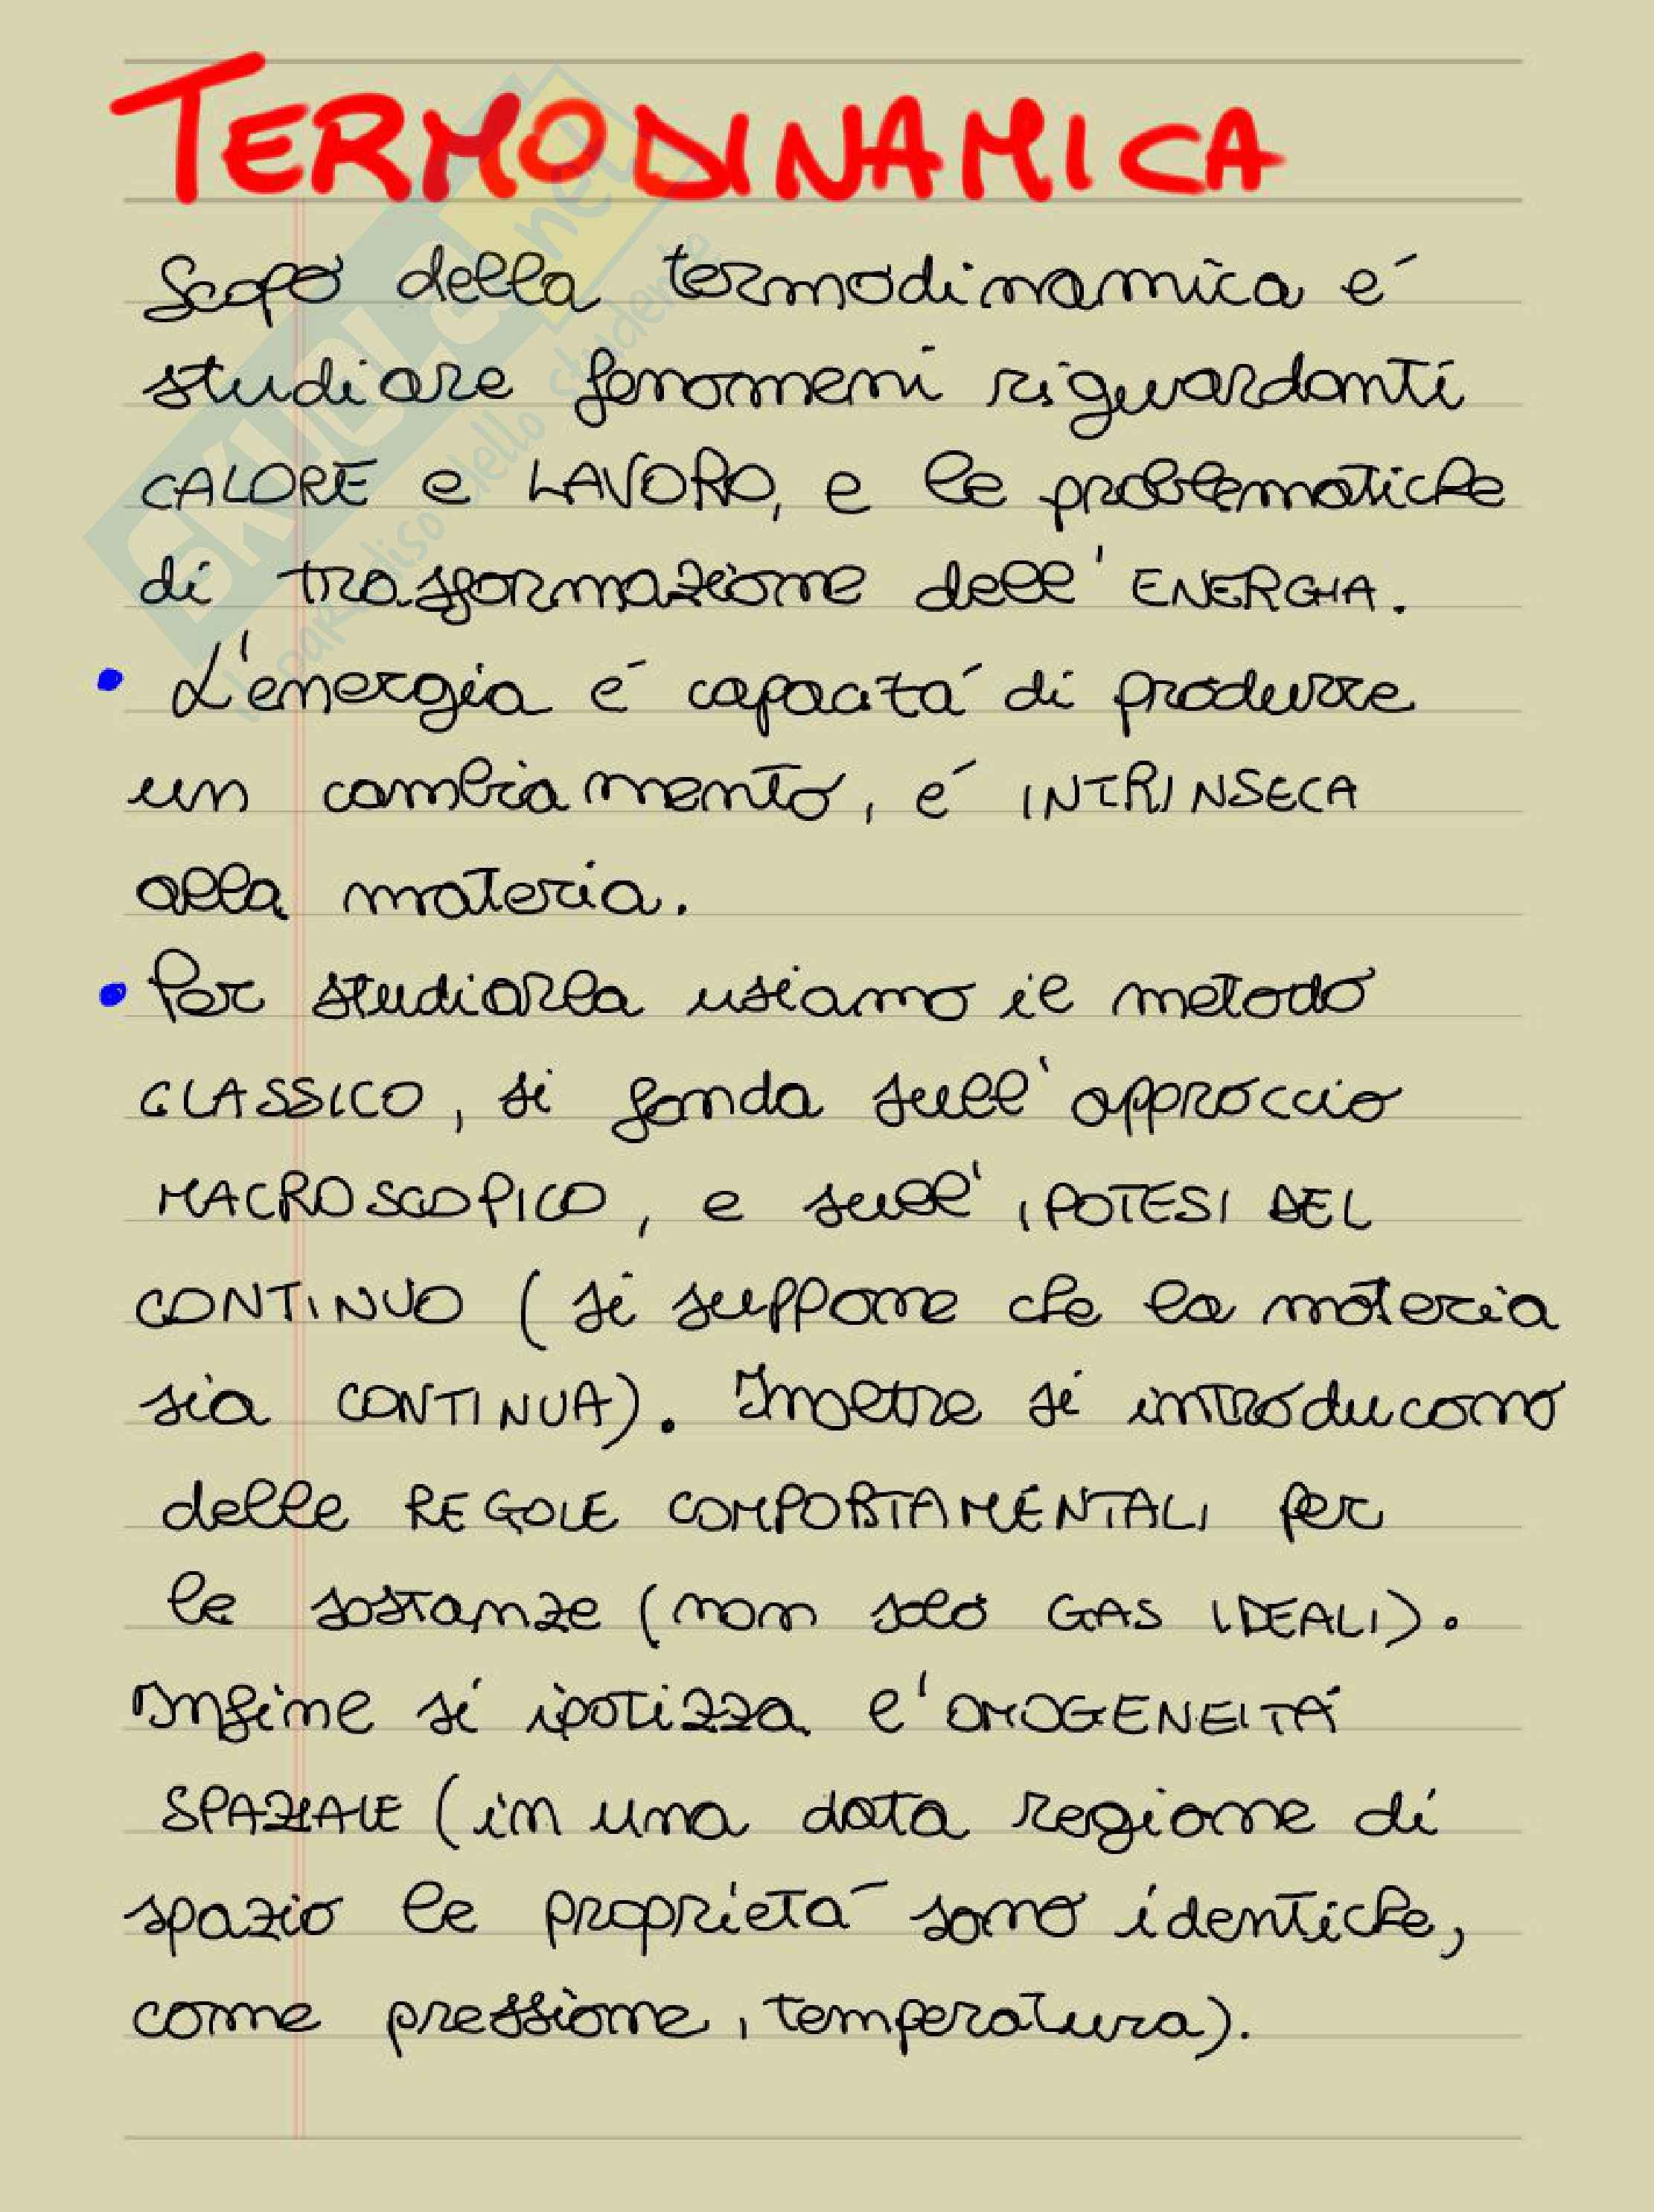 TERMODINAMICA
Scopo della termodinamica é
studiare fenomeni riguardanti
CALORE e LAVORO, e le problematiche
di trasformazione dell'ENERGIA.
• L'energia é capacitá di produrre
un cambiamento, é INTRINSECA
alla materia.
• Per studiarla usiamo il metodo
CLASSICO, si fonda sull'approccio
MACROSCOPICO, e sull'IPOTESI DEL
CONTINUO (si suppone che la materia
sia CONTINUA). Inoltre si introducono
delle REGOLE COMPORTAMENTALI per
le sostanze (non solo GAS IDEALI).
Infine si ipotizza l'OMOGENEITÁ
SPAZIALE (in una data regione di
spazio le proprietá sono identiche,
come pressione, temperatura).
SKUOLA.net
Il paradiso dello studente